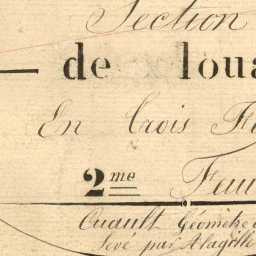 Section
de loua
En Trois F
2me Feui
Géomètre
Levé par